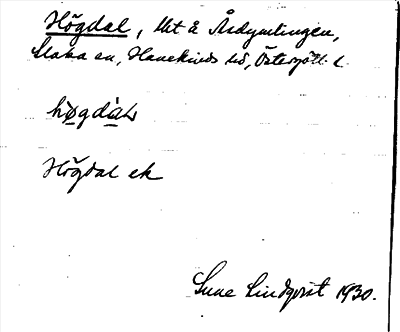 Högdal, Ut å Årdymlingen,
Slaka sn, Hanekinds hd, Östergötl. l.
hø̀gdàɫ
Högdal ek
Sune Lindqvist 1930.